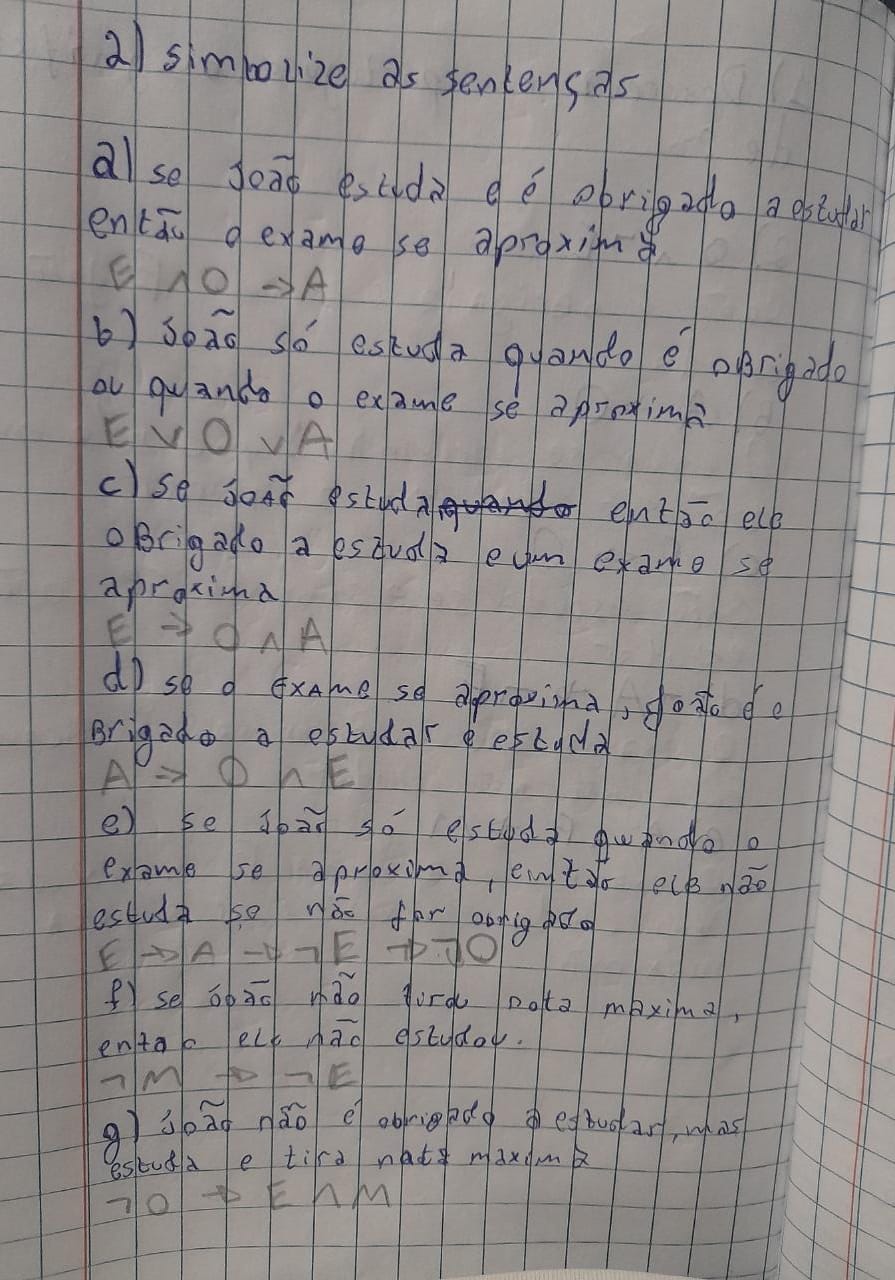 2) simbolize as sentenças
a) se João estuda e é obrigado a estudar
então o exame se aproxima
E ∧ O → A
b) João só estuda quando é oBrigado
ou quando o exame se aproxima
E ∨ O ∨ A
c) se João estuda quando então ele
oBrigado a estuda e um exame se
aproxima
E → O ∧ A
d) se o exame se aproxima, João é o
Brigado a estudar e estuda
A → O ∧ E
e) se João só estuda quando o
exame se aproxima, então ele não
estuda se não for obrigado
E → A → ¬E → ¬O
f) se João não nota maxima,
entao ele não estudou.
¬M → ¬E
g) João não é obrigado a estudar, mas
estuda e tira nota maxima
¬O → E ∧ M